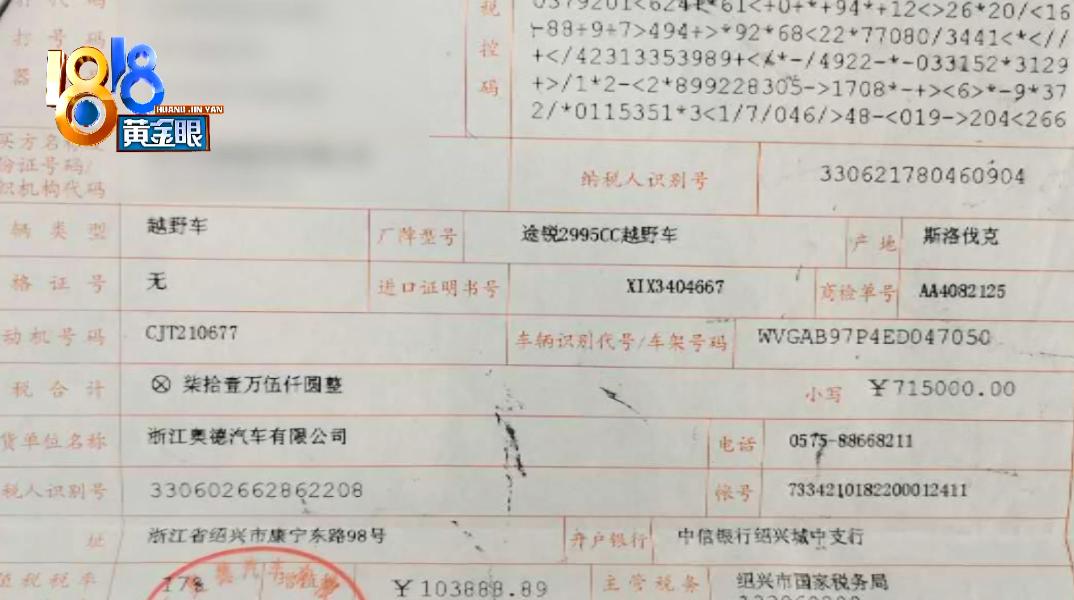 税控码
0379201<624+*61<+0+*+94*+12<>26*20/<16
-88+9+7>494+>*92*68<22*77080/3441<*<//
+</42313353989+<<*-/4922-*-033152*3129
+>/1*2-<2*899228305->1708*-+><6>*-9*37
2/*0115351*3<1/7/046/>48-<019->204<266
1818
HUANG JIN YAN
黄金眼
买方名称
份证号码/
织机构代码
纳税人识别号 330621780460904
辆类型 越野车 厂牌型号 途锐2995CC越野车 产地 斯洛伐克
格证号 无 进口证明书号 XIX3404667 商检单号 AA4082125
动机号码 CJT210677 车辆识别代号/车架号码 WVGAB97P4ED047050
税合计 ⊗ 柒拾壹万伍仟圆整 小写 ￥715000.00
货单位名称 浙江奥德汽车有限公司 电话 0575-88668211
税人识别号 330602662862208 帐号 7334210182200012411
址 浙江省绍兴市康宁东路98号 开户银行 中信银行绍兴城中支行
值税税率 17% 增值税 ￥103888.89 主管税务 绍兴市国家税务局